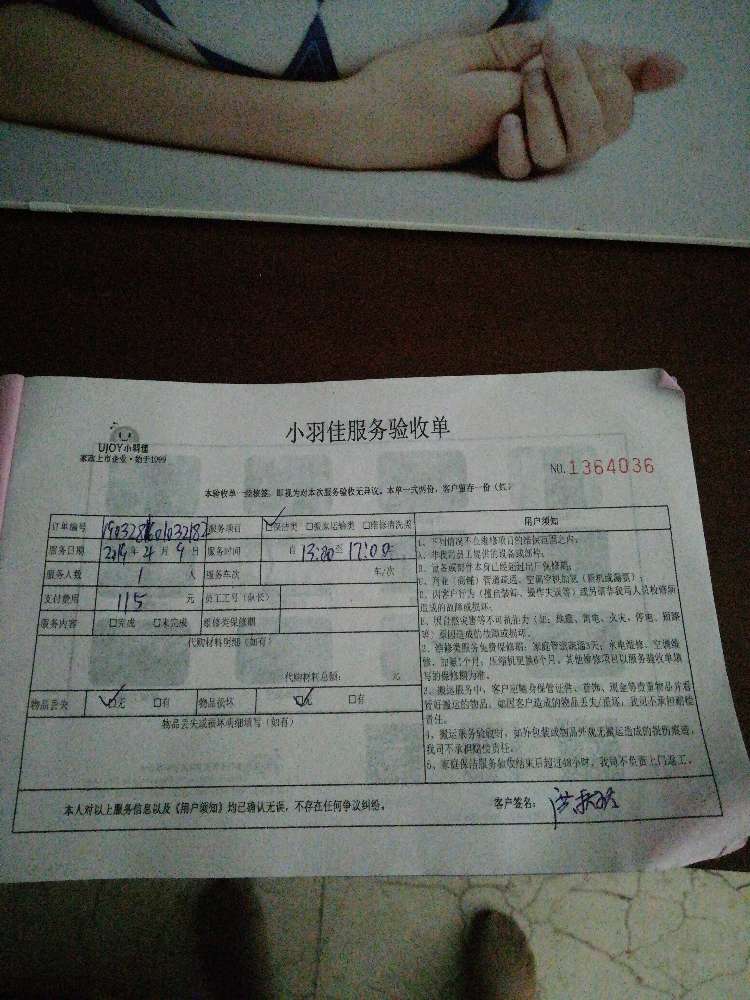 小羽佳服务验收单
UJOY小羽佳
家政上市企业·始于1999
NO.1364036
本验收单一经核签,即视为对本次服务验收无异议。本单一式两份,客户留存一份(红)
订单编号 服务项目 保洁类 搬家运输类 维修清洗类
服务日期 2019年4月9日 服务时间 自13:00至17:00
服务人数 1 人 服务车次 车/次
支付费用 115 元 员工工号(队长)
服务内容 □完成 □未完成 维修类保修期
代购材料明细(如有)
代购材料总额: 元
物品丢失 ☑无 □有 物品损坏 ☑无 □有
物品丢失或损坏明细填写(如有)
用户须知
1、下列情况不在维修项目的维保范围之内:
A、非我司员工提供的设备或部件。
B、设备或部件本身已经超过出厂保修期。
造成的故障或损坏。
2、维修类服务免费保修期:家庭管道疏通3天,水电维修、空调维
修、加氟1个月,压缩机更换6个月,其他维修项目以服务验收单填
写的保修期为准。
3、搬运服务中,客户应随身保管证件、首饰、现金等贵重物品并看
管好搬运的物品,如因客户造成的物品丢失/混坏,我司不承担赔偿
责任。
4、搬运服务验收时,如外包装或物品外观无搬运造成的损伤痕迹,
我司不承担赔偿责任。
5、家庭保洁服务验收结束后超过48小时,我司不负责上门返工。
本人对以上服务信息以及《用户须知》均已确认无误,不存在任何争议纠纷。
客户签名: